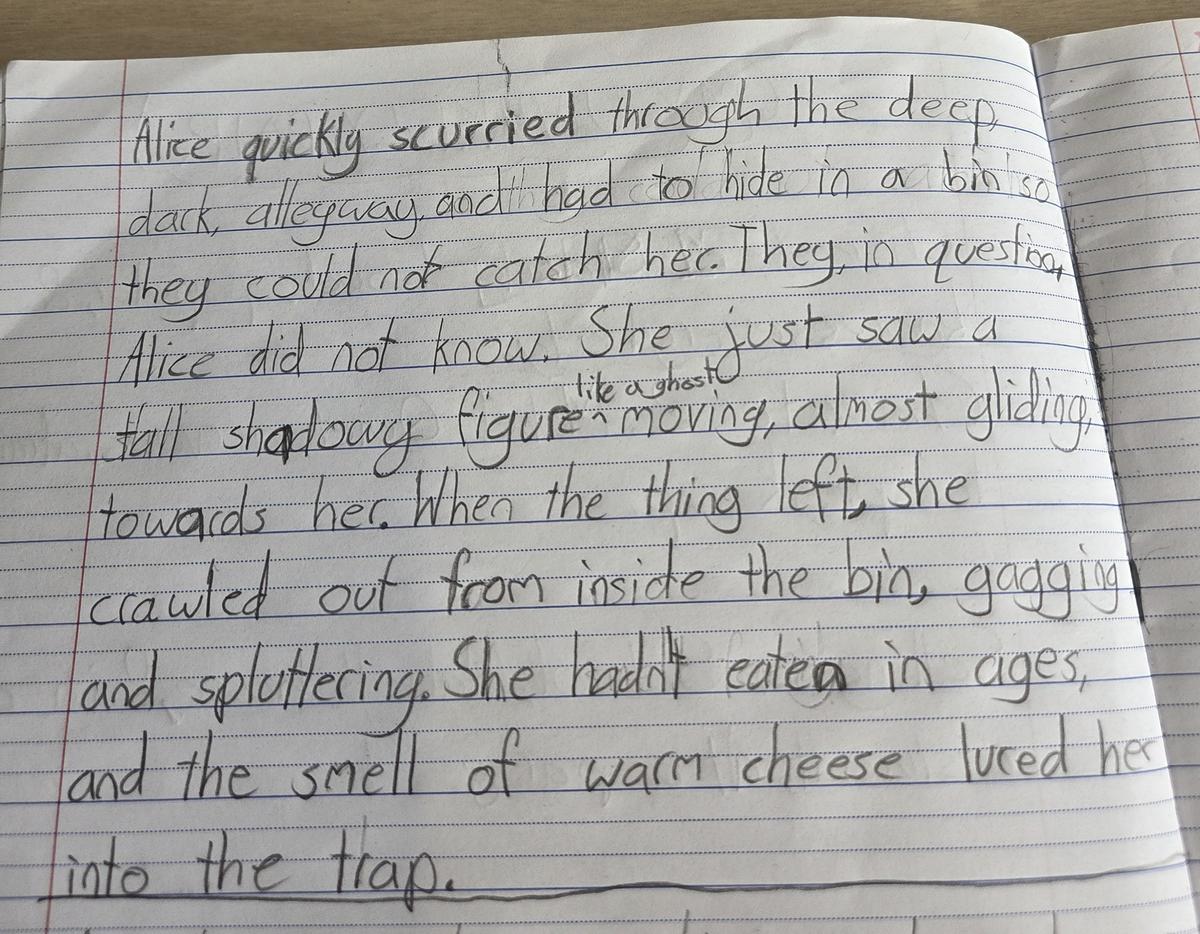 Alice quickly scurried through the deep,
dark, alleyway, and had to hide in a bin so
they could not catch her. They, in question,
Alice did not know. She just saw a
like a ghost
tall shadowy figure ^ moving, almost gliding,
towards her. When the thing left, she
crawled out from inside the bin, gagging
and spluttering. She hadn't eaten in ages,
and the smell of warm cheese lured her
into the trap.